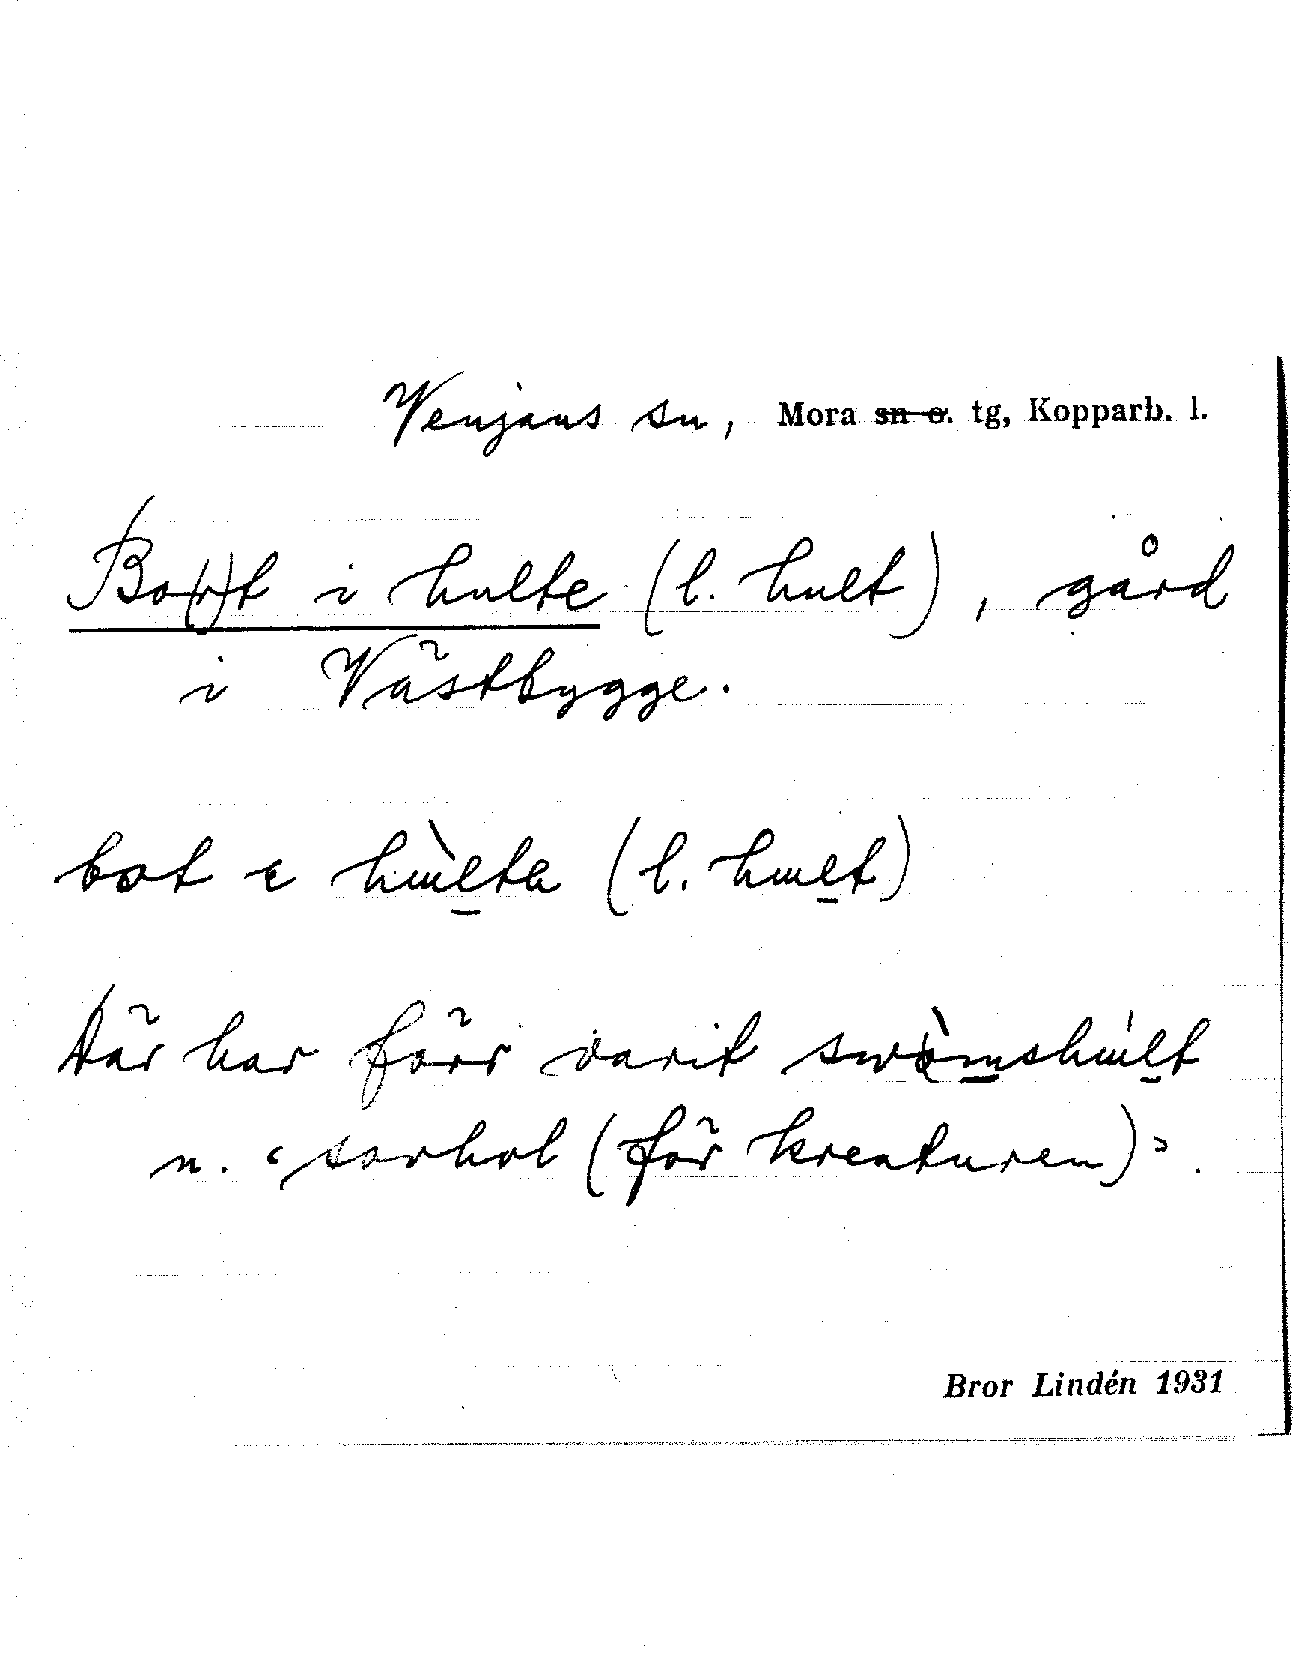 Venjans sn, Mora sn o. tg, Kopparb. l.
Bo(r)t i hulte (l. hult), gård
i Västbygge.
bot
(l.
Där har förr varit
n. ‹ (för kreaturen)›.
Bror Lindén 1931